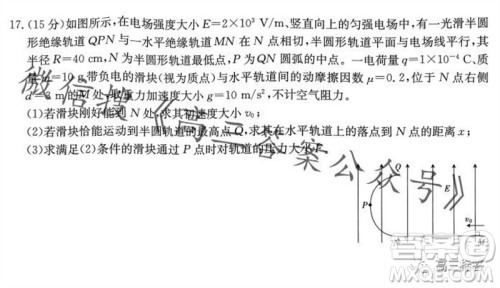 17.(15分)如图所示,在电场强度大小E=2×10³ V/m、竖直向上的匀强电场中,有一光滑半圆
形绝缘轨道QPN与一水平绝缘轨道MN在N点相切,半圆形轨道平面与电场线平行,其
半径R=40 cm,N为半圆形轨道最低点,P为QN圆弧的中点。一电荷量q=1×10⁻⁴ C、质
量m=10 g、带负电的滑块(视为质点)与水平轨道间的动摩擦因数μ=0.2,位于N点右侧
M处,重力加速度大小g=10 m/s²,不计空气阻力。
(1)若滑块刚好能到N处,求其初速度大小v₀;
(2)若滑块恰能运动到半圆轨道的最高点Q,求其在水平轨道上的落点到N点的距离x;
(3)求满足(2)条件的滑块通过P点时对轨道的压力大小F。
微信搜《高三答案公众号》
Q
E
P
v₀
M
答案圈
MXQE.COM